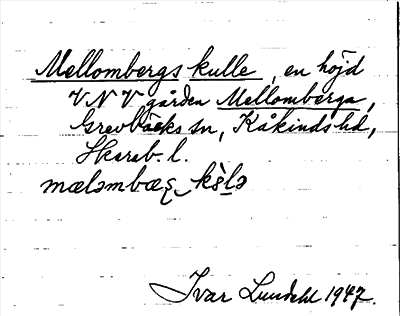 Mellombergs kulle, en höjd
V N V gården Mellomberga,
Grevbäcks sn, Kåkinds hd,
Skarab. l.
mæləmbæȿ kɞ̀lə
Ivar Lundahl 1947.